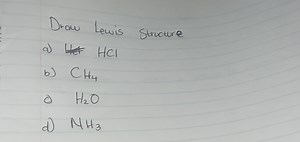 Draw Lewis Strucure
a) HCl
b) CH4
c) H2O
d) NH3